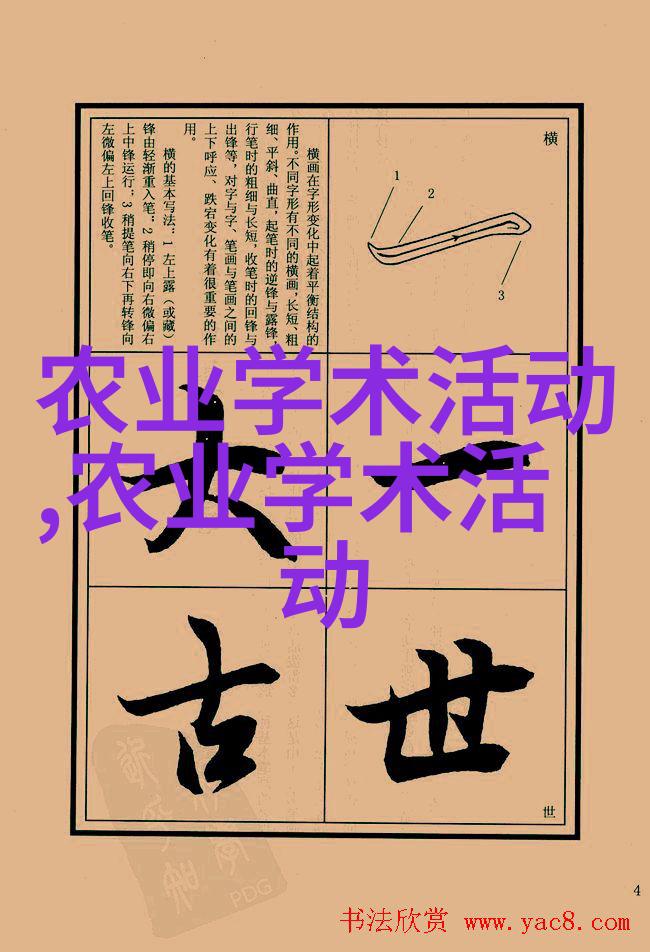 横
1
2
3
横画在字形变化中起着平衡结构的
作用。不同字形有不同的横画，长短、粗
细、平斜、曲直，起笔时的逆锋与露锋，
行笔时的粗细与长短，收笔时的回锋与
出锋等，对字与字、笔画与笔画之间的
上下呼应、跌宕变化有着很重要的作
用。
横的基本写法：1 左上露（或藏）
锋由轻渐重入笔；2 稍停即向右微偏右
上中锋运行；3 稍提笔向右下再转锋向
左微偏左上回锋收笔。
农业学术活动
,农业学术活
动
一
六
世
古
世
PDG
4
书法欣赏 www.yac8.com